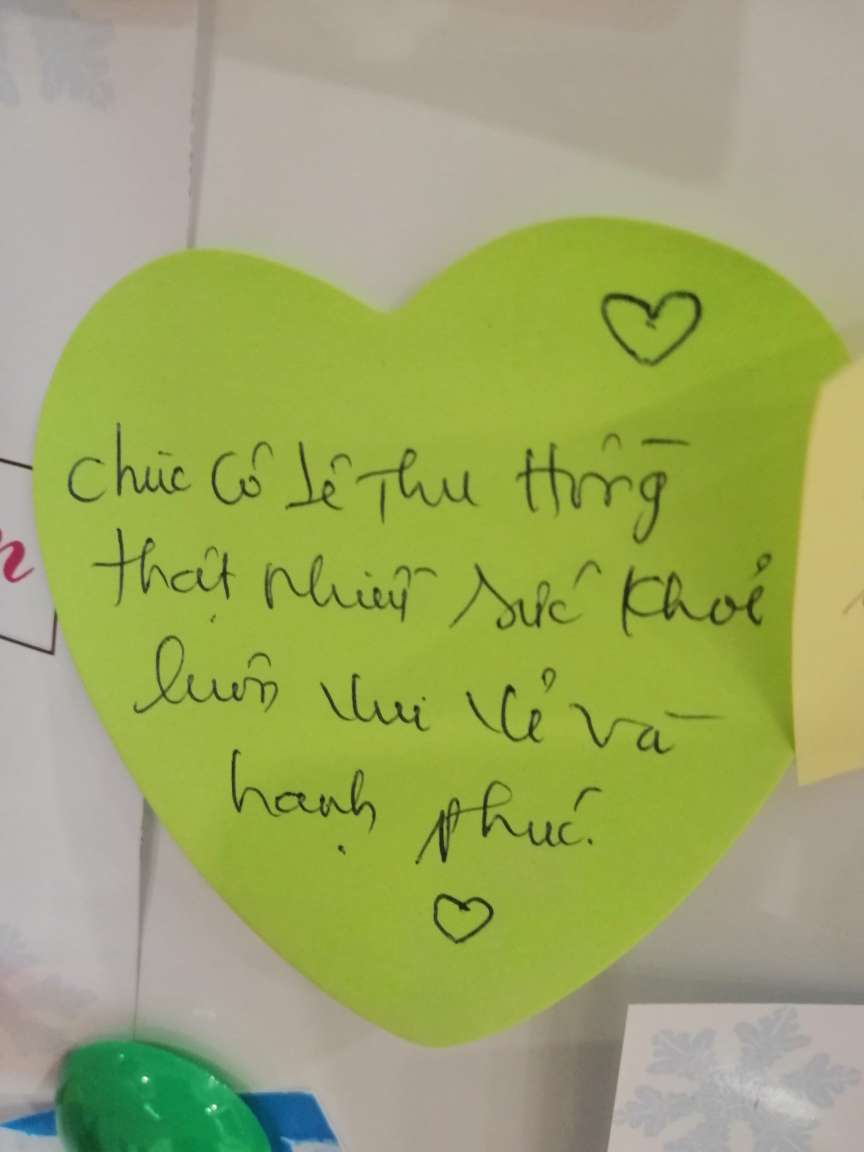 Chúc Cô Lê Thu Hồng
thật nhiều sức khoẻ
luôn vui vẻ và
hạnh phúc.
n